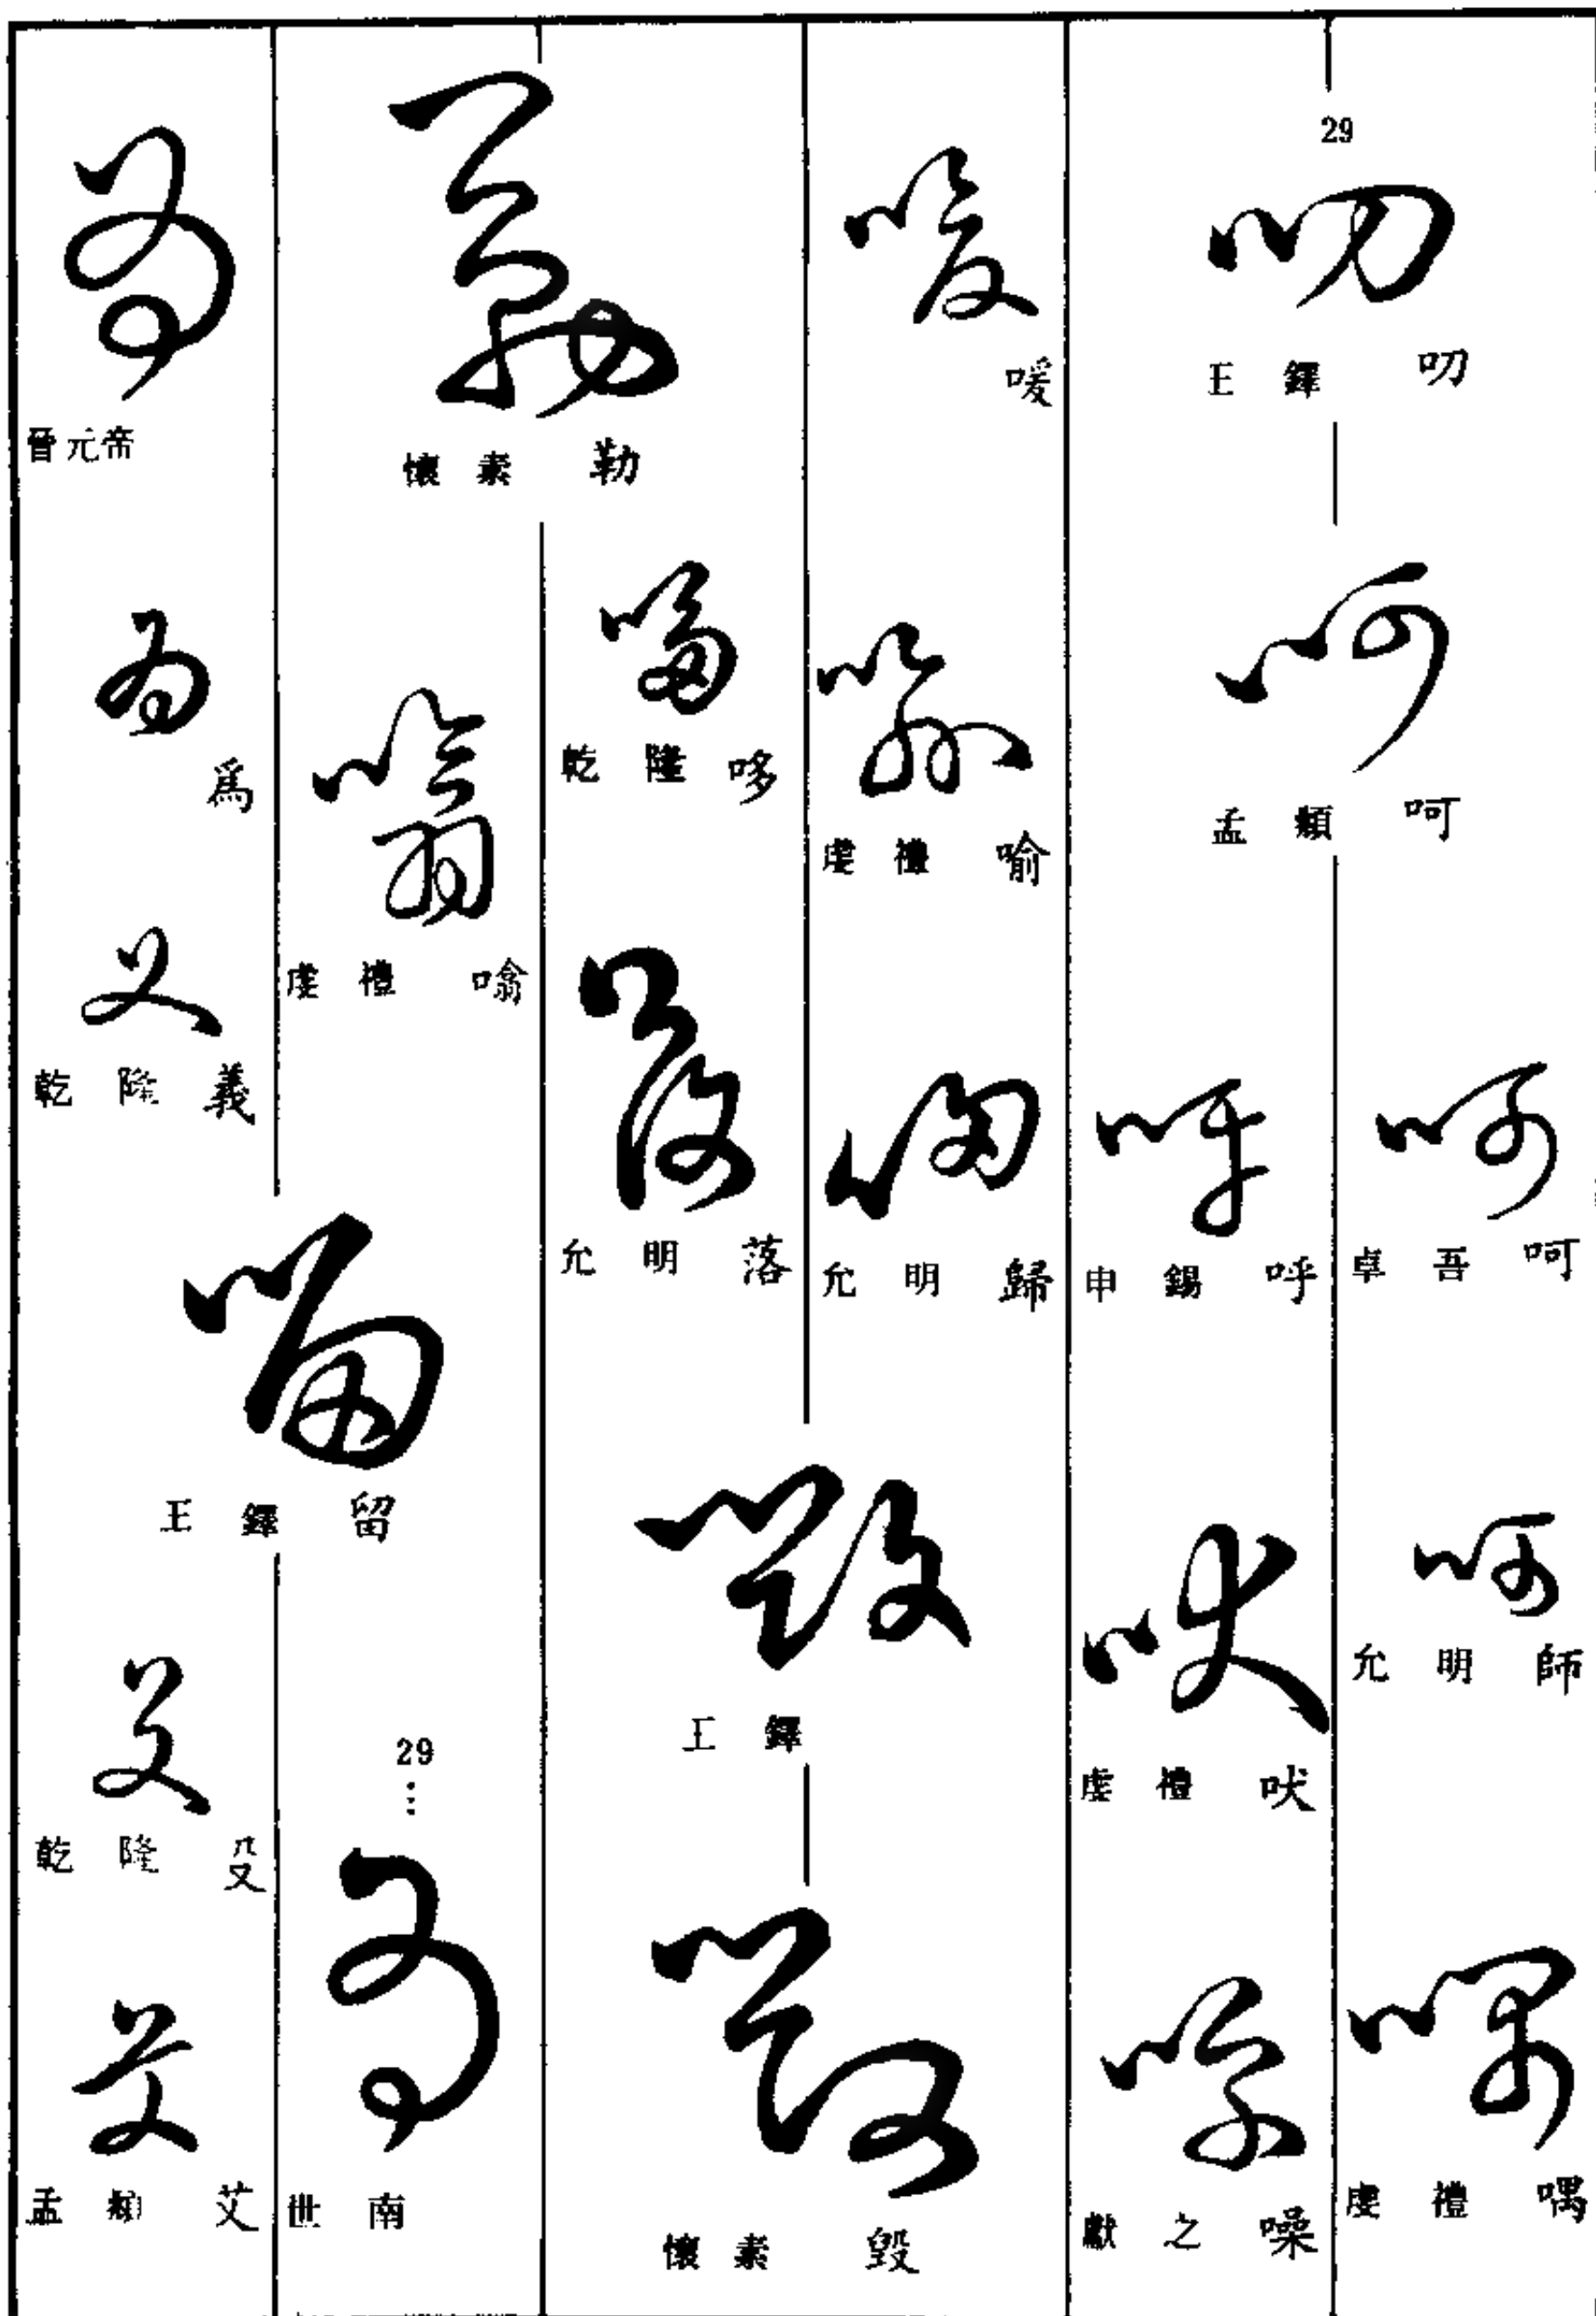 29
王鐸 叨
孟頫 呵
卓吾 呵
允明 師
虔禮 喁
申錫 呼
虔禮 吠
獻之 噪
喛
虔禮 喻
允明 歸
王鐸
懷素 毀
懷素 勒
乾隆 哆
允明 落
虔禮 噏
王鐸 留
29
世南
晉元帝
爲
乾隆 義
乾隆 殳
孟頫 艾